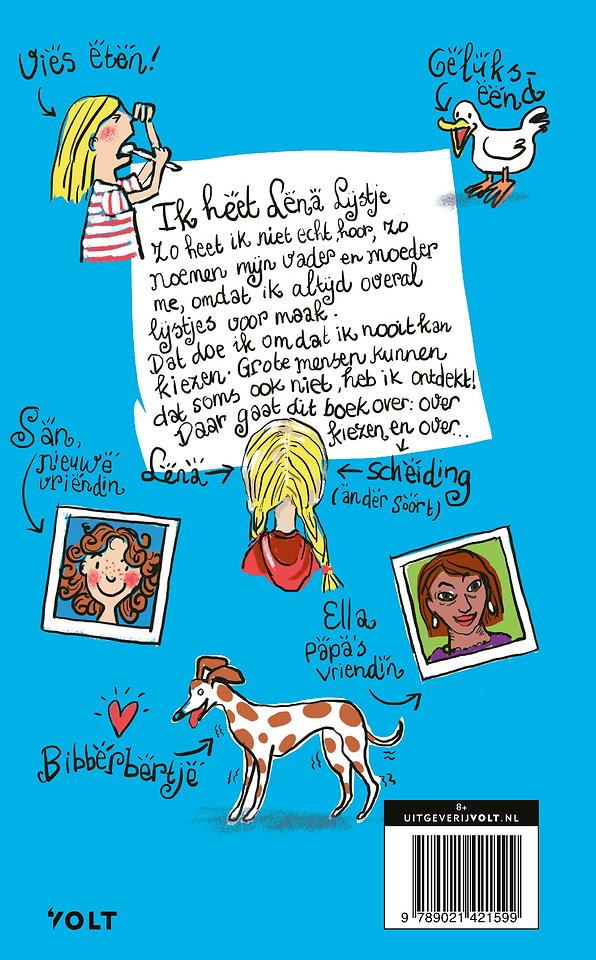 Vies eten!
Geluks-
eend
Ik heet Lena Lijstje
Zo heet ik niet echt, hoor, zo
noemen mijn vader en moeder
me, omdat ik altijd overal
lijstjes voor maak.
Dat doe ik omdat ik nooit kan
kiezen. Grote mensen kunnen
dat soms ook niet, heb ik ontdekt!
Daar gaat dit boek over: over
kiezen en over...
San,
nieuwe
vriendin
Lena
scheiding
(ander soort)
Ella
papa's
vriendin
Bibberbertje
8+
UITGEVERIJVOLT.NL
9 789021 421599
VOLT